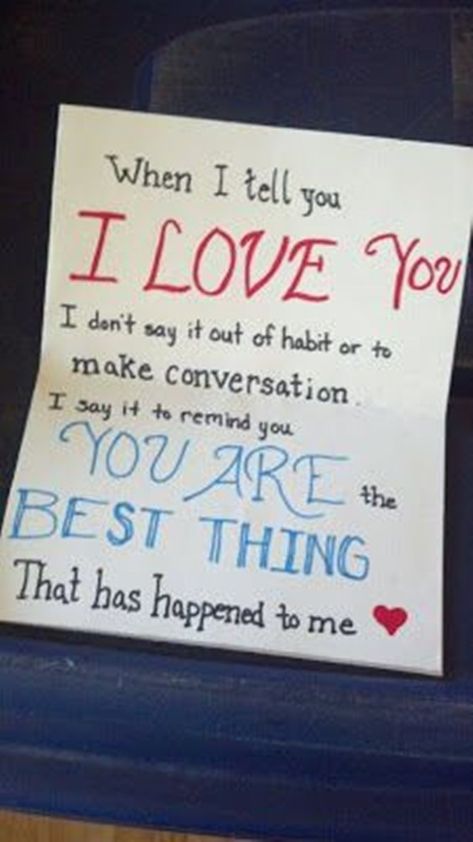 When I tell you
I LOVE You
I don't say it out of habit or to
make conversation.
I say it to remind you
YOU ARE the
BEST THING
That has happened to me